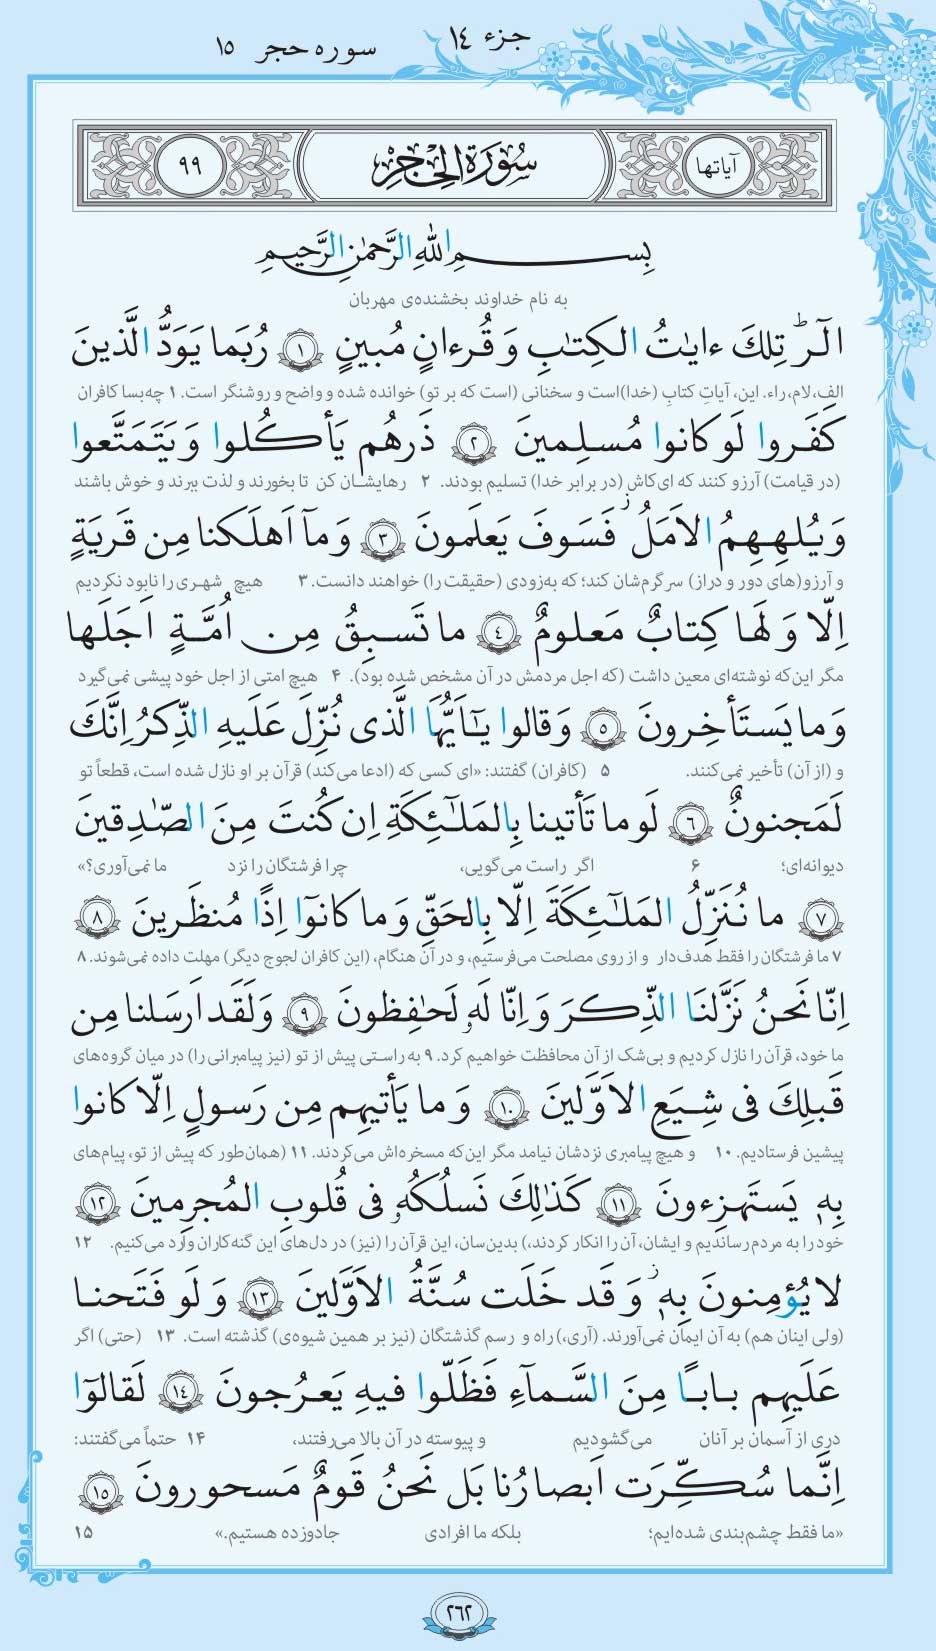 جزء ١٤
سوره حجر ١٥
آیاتها
سُورَةُ الحِجرِ
٩٩
بِسمِ اللّٰهِ الرَّحمٰنِ الرَّحیمِ
به نام خداوند بخشنده‌ی مهربان
الٓرٰ تِلكَ ءایٰتُ الكِتٰبِ وَ قُرءانٍ مُبینٍ ١ رُبَما یَوَدُّ الَّذینَ
الف،لام، راء. این، آیاتِ کتابِ (خدا)است و سخنانی (است که بر تو) خوانده شده و واضح و روشنگر است. ۱ چه‌بسا کافران
كَفَروا لَو كانوا مُسلِمینَ ٢ ذَرهُم یَأكُلوا وَ یَتَمَتَّعوا
(در قیامت) آرزو کنند که ای‌کاش (در برابر خدا) تسلیم بودند. ۲ رهایشان کن تا بخورند و لذت ببرند و خوش باشند
وَ یُلهِهِمُ الاَمَلُ ز فَسَوفَ یَعلَمونَ ٣ وَ مآ اَهلَكنا مِن قَریَةٍ
و آرزو(های دور و دراز) سرگرم‌شان کند؛ که به‌زودی (حقیقت را) خواهند دانست. ۳ هیچ شهری را نابود نکردیم
اِلّا وَ لَها كِتابٌ مَعلومٌ ٤ ما تَسبِقُ مِن اُمَّةٍ اَجَلَها
مگر این‌که نوشته‌ای معین داشت (که اجل مردمش در آن مشخص شده بود). ۴ هیچ امتی از اجل خود پیشی نمی‌گیرد
وَ ما یَستَأخِرونَ ٥ وَ قالوا یٰٓاَیُّهَا الَّذی نُزِّلَ عَلَیهِ الذِّكرُ اِنَّكَ
و (از آن) تأخیر نمی‌کنند. ۵ (کافران) گفتند: «ای کسی که (ادعا می‌کند) قرآن بر او نازل شده است، قطعاً تو
لَمَجنونٌ ٦ لَو ما تَأتینا بِالمَلٰٓئِكَةِ اِن كُنتَ مِنَ الصّٰدِقینَ
دیوانه‌ای؛ ۶ اگر راست می‌گویی، چرا فرشتگان را نزد ما نمی‌آوری؟»
٧ ما نُنَزِّلُ المَلٰٓئِكَةَ اِلّا بِالحَقِّ وَ ما كانوٓا اِذًا مُنظَرینَ ٨
۷ ما فرشتگان را فقط هدف‌دار و از روی مصلحت می‌فرستیم، و در آن هنگام، (این کافران لجوج دیگر) مهلت داده نمی‌شوند. ۸
اِنّا نَحنُ نَزَّلنَا الذِّكرَ وَ اِنّا لَهٗ لَحٰفِظونَ ٩ وَ لَقَد اَرسَلنا مِن
ما خود، قرآن را نازل کردیم و بی‌شک از آن محافظت خواهیم کرد. ۹ به راستی پیش از تو (نیز پیامبرانی را) در میان گروه‌های
قَبلِكَ فی شِیَعِ الاَوَّلینَ ١٠ وَ ما یَأتیهِم مِن رَسولٍ اِلّا كانوا
پیشین فرستادیم. ۱۰ و هیچ پیامبری نزدشان نیامد مگر این‌که مسخره‌اش می‌کردند. ۱۱ (همان‌طور که پیش از تو، پیام‌های
بِهٖ یَستَهزِءونَ ١١ كَذٰلِكَ نَسلُكُهٗ فی قُلوبِ المُجرِمینَ ١٢
خود را به مردم رساندیم و ایشان، آن را انکار کردند،) بدین‌سان، این قرآن را (نیز) در دل‌های این گنه‌کاران وارد می‌کنیم. ۱۲
لا یُؤمِنونَ بِهٖ ز وَ قَد خَلَت سُنَّةُ الاَوَّلینَ ١٣ وَ لَو فَتَحنا
(ولی اینان هم) به آن ایمان نمی‌آورند. (آری،) راه و رسم گذشتگان (نیز بر همین شیوه‌ی) گذشته است. ۱۳ (حتی) اگر
عَلَیهِم بابًا مِنَ السَّمآءِ فَظَلّوا فیهِ یَعرُجونَ ١٤ لَقالوٓا
دری از آسمان بر آنان می‌گشودیم و پیوسته در آن بالا می‌رفتند، ۱۴ حتماً می‌گفتند:
اِنَّما سُكِّرَت اَبصارُنا بَل نَحنُ قَومٌ مَسحورونَ ١٥
«ما فقط چشم‌بندی شده‌ایم؛ بلکه ما افرادی جادوزده هستیم.» ۱۵
٢٦٢